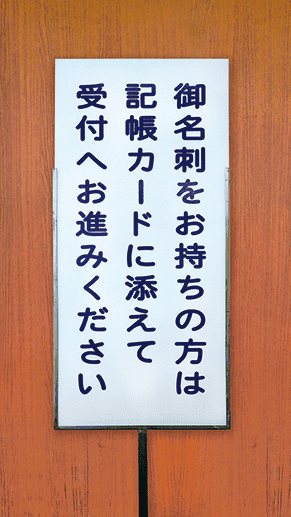 御名刺をお持ちの方は
記帳カードに添えて
受付へお進みください